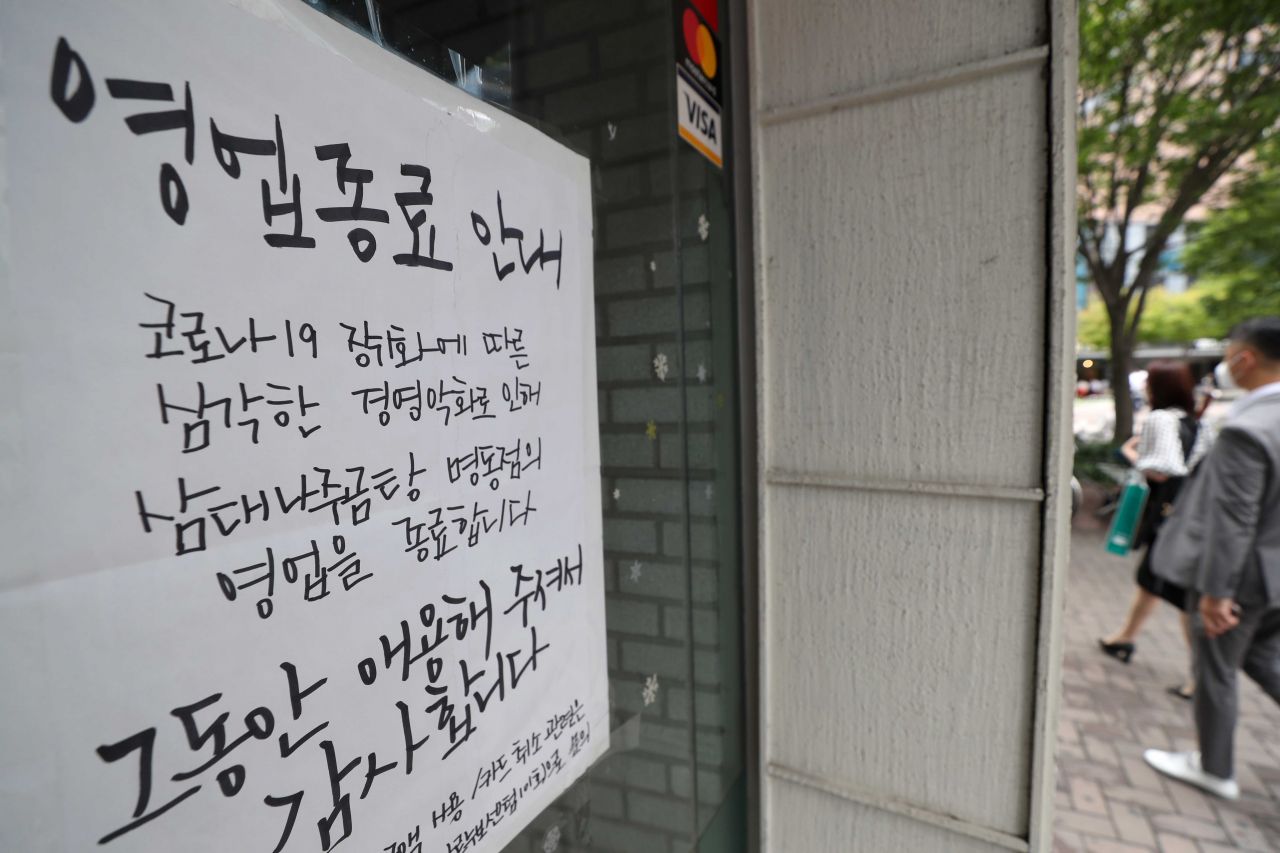 영업종료 안내
코로나-19 장기화에 따른
심각한 경영악화로 인해
삼대나주곰탕 명동점의
영업을 종료합니다
그동안 애용해 주셔서
감사합니다
사용 /카드 취소 관련은
문의
VISA